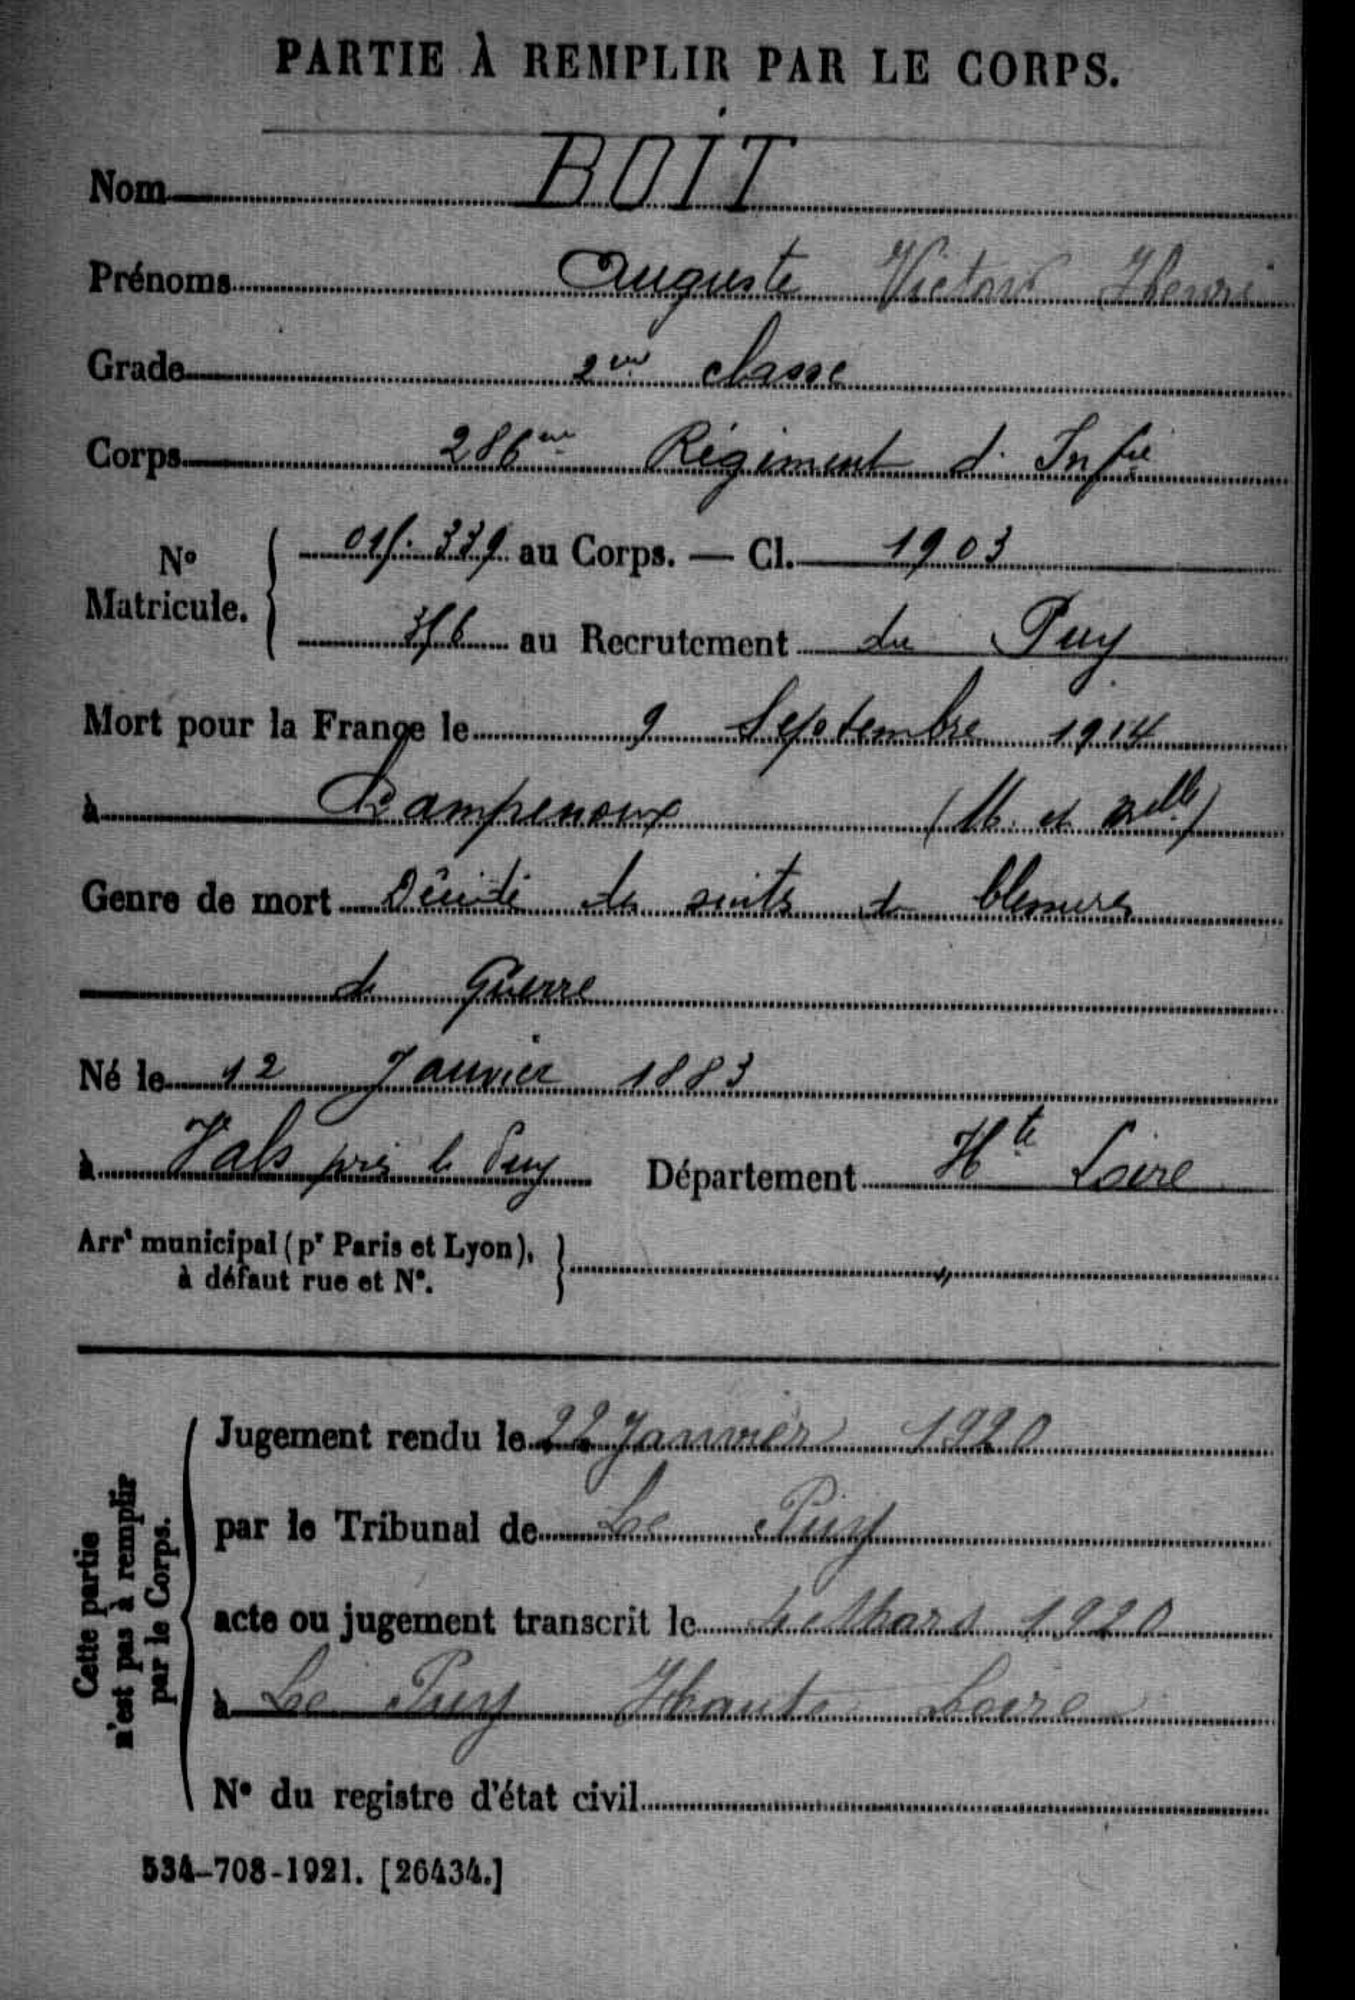 PARTIE À REMPLIR PAR LE CORPS.
Nom BOIT
Prénoms Auguste Victor Henri
Grade 2me classe
Corps 286me Régiment d'Infie
No Matricule. 015.339 au Corps. — Cl. 1903
356 au Recrutement du Puy
Mort pour la France le 9 Septembre 1914
à Champenoux (M. et Mlle)
Genre de mort Décédé des suites de blessures
de Guerre
Né le 12 Janvier 1883
à Vals près le Puy Département Hte Loire
Arrt municipal (pr Paris et Lyon),
à défaut rue et No.
Cette partie
n'est pas à remplir
par le Corps.
Jugement rendu le 22 Janvier 1920
par le Tribunal de Le Puy
acte ou jugement transcrit le Mars 1920
à Le Puy Haute Loire
No du registre d'état civil
534-708-1921. [26434.]